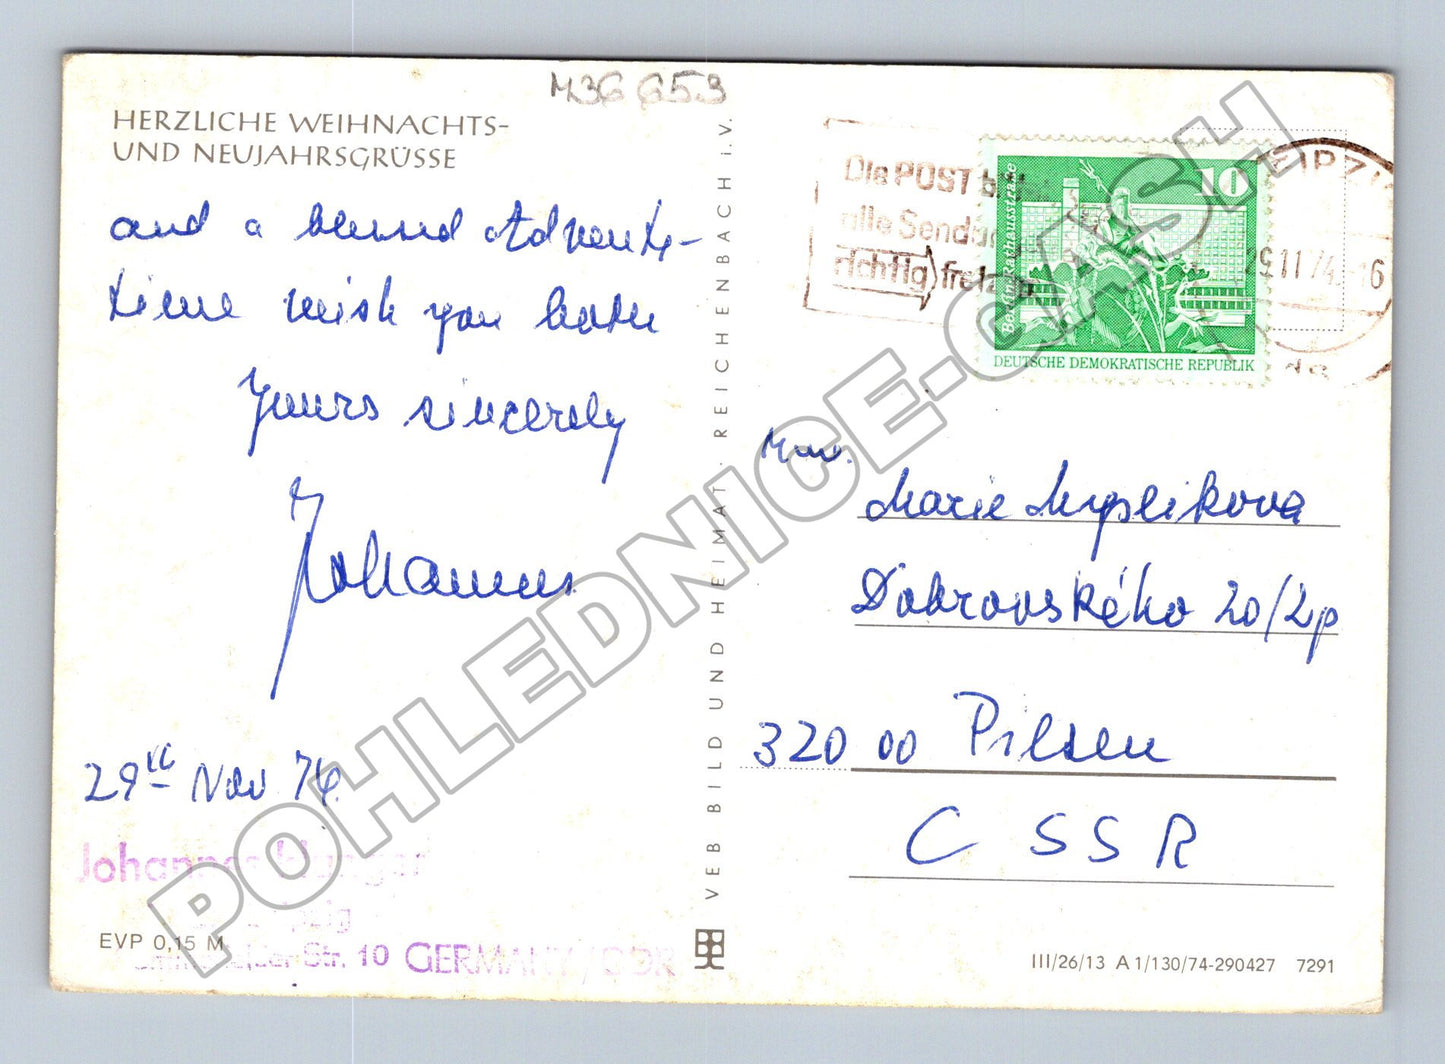 M36 653
HERZLICHE WEIHNACHTS-
UND NEUJAHRSGRÜSSE
and a blessed Advents-
time wish you both
Yours sincerely
Johannes
29th Nov 74.
Johannes
Str. 10 GERMANY/GDR
EVP 0,15 M
VEB BILD UND HEIMAT · REICHENBACH i. V.
Die POST
alle Sendu
richtig frei
LEIPZIG
29.11.74.-16
10
DEUTSCHE DEMOKRATISCHE REPUBLIK
Marie Myslikova
Dobrovského 20/2p
320 00 Pilsen
CSSR
III/26/13 A 1/130/74-290427 7291
POHLEDNICE.CASH